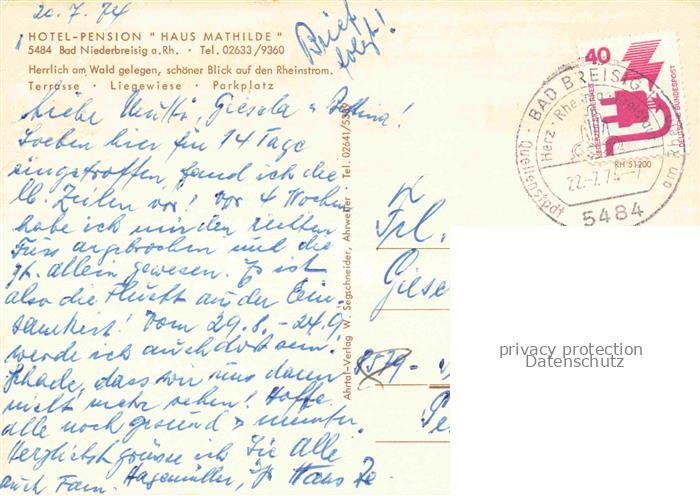 20.7.74
HOTEL-PENSION "HAUS MATHILDE"
5484 Bad Niederbreisig a.Rh. • Tel. 02633/9360
Herrlich am Wald gelegen, schöner Blick auf den Rheinstrom.
Terrasse • Liegewiese • Parkplatz
Brief
folgt!
Liebe Mutti, Giesela u. Bettina!
Soeben hier für 14 Tage
eingetroffen, fand ich die
lb. Zeilen vor! Vor 4 Wochen
habe ich mir den rechten
Fuss angebrochen und die
allein gewesen. Es ist
also die Flucht aus der Ein-
samkeit! Vom 29.8. - 24.9.
werde ich auch dort sein.
Schade, dass wir uns dann
nicht mehr sehen! Hoffe
alle noch gesund & munter.
Herzlichst grüsse ich Sie Alle
auch Fam. Hagemüller, Hans
Ahrtal-Verlag W. Segschneider, Ahrweiler • Tel. 02641/5389
Frl.
Giesel
40
JEDERZEIT SICHERHEIT
DEUTSCHE BUNDESPOST
RH 51200
BAD BREISIG
am Rhein
Quellenstadt
22.-7.74-7
5484
privacy protection
Datenschutz